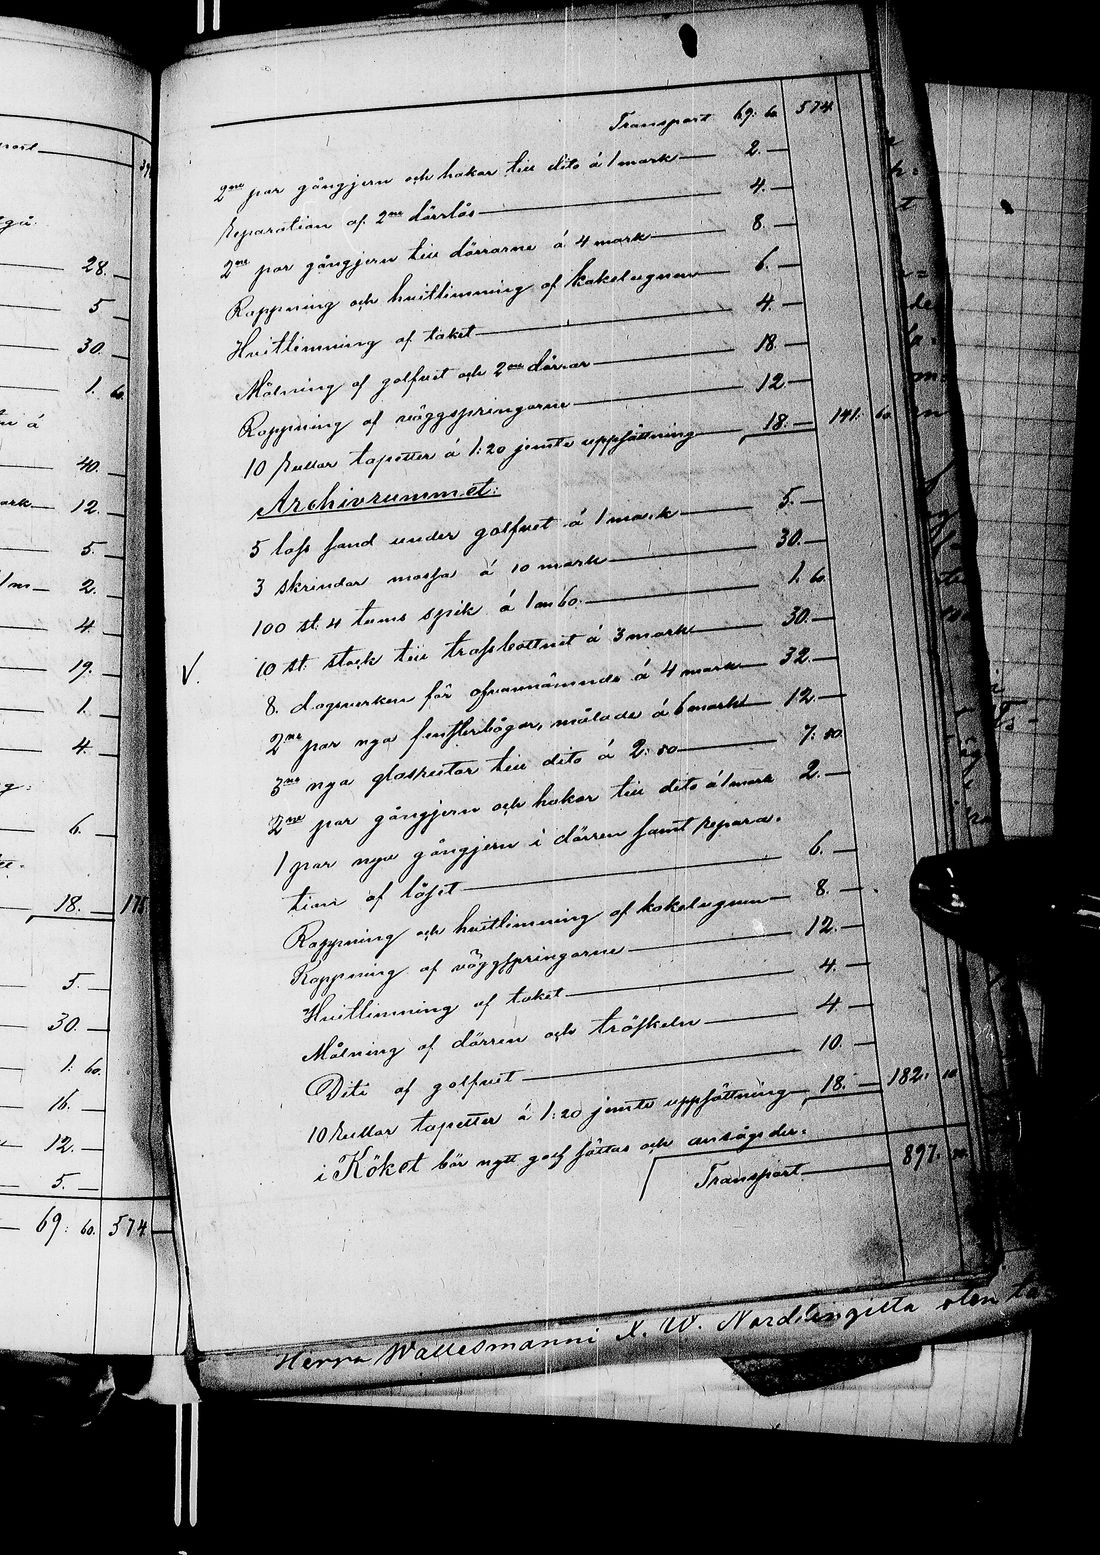 28. —
5 —
30. —
1. 60.
40. —
12. —
5. —
2. —
4. —
19. —
1. —
4. —
6. —
18. — 175
5. —
30. —
1. 60.
16. —
12. —
5. —
69: 60. 574 —
Transport 69: 60. 574 —
2ne par gångjern och hakar till dito á 1 mark — 2. —
Reparation af 2ne dörrlås — 4. —
2ne par gångjern till dörrarne á 4 mark — 8. —
Rappning och hvitlimning af kakelugnen — 6. —
Hvitlimning af taket — 4. —
Målning af golfvet och 2ne dörrar — 18. —
Rappning af väggspringorne — 12. —
10 Rullar tapetter á 1: 20 jemte uppsättning — 18. — 141. 60.
Archivrummet:
5 lass sand under golfvet á 1 mark — 5. —
3 skrindor mossa á 10 mark — 30. —
100 st: 4 tums spik á 1 m 60. — 1. 60.
V. 10 st: stock till trossbottnet á 3 mark — 30. —
8. dagsverken för ofvannämnde á 4 mark — 32. —
2ne par nya fensterbågar, målade á 6 mark — 12. —
3ne nya glasrutor till dito á 2: 50 — 7: 50.
2ne par gångjern och hakar till dito á 1 mark 2. —
1 par nya gångjern i dörren samt repara-
tion af låset — 6. —
Rappning och hvitlimning af kakelugnen — 8. —
Rappning af väggspringorne — 12. —
Hvitlimning af taket — 4. —
Målning af dörren och tröskeln — 4. —
Dito af golfvet — 10. —
10 Rullar tapetter á 1: 20 jemte uppsättning — 18. — 182. 10
i Köket bör nytt golf sättas och ansågs der:
Transport — 897. 70.
Herra Wallesmanni N. W. Nordlingilta olen